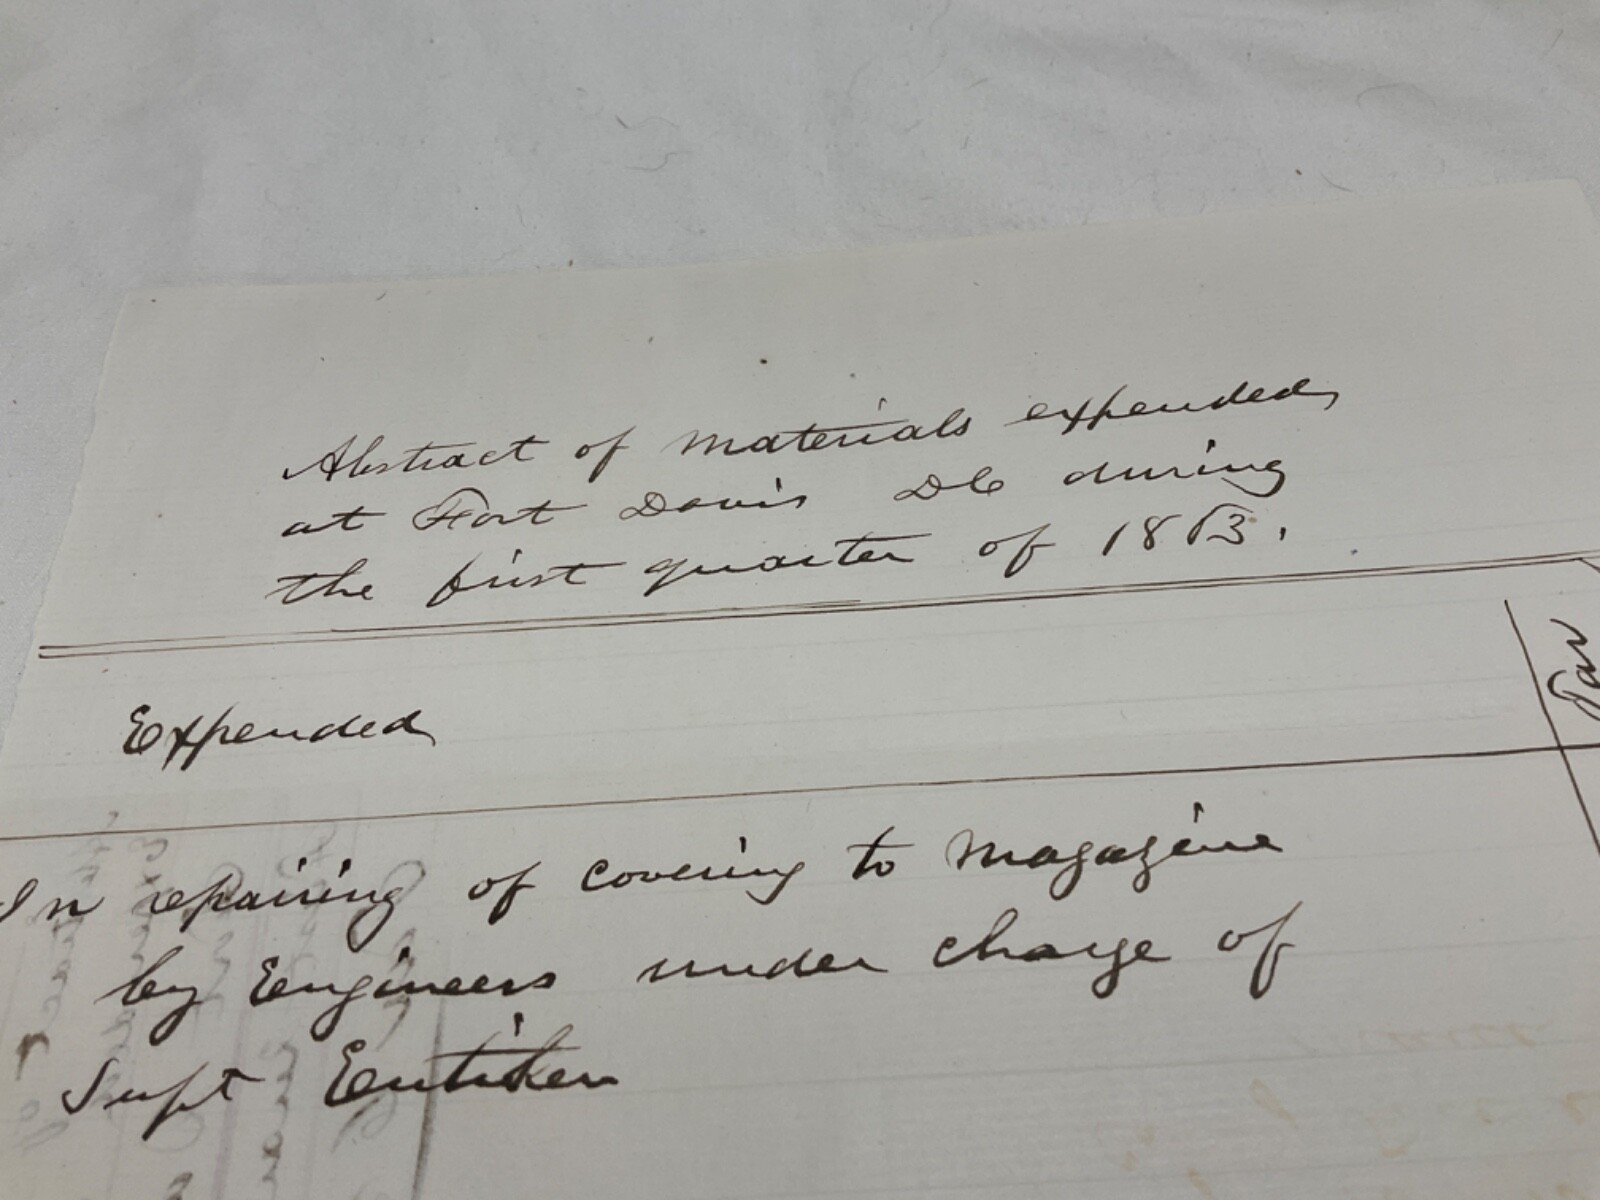 Abstract of materials expended
at Fort Davis DC during
the first quarter of 1863.
Expended
Tar
In repairing of covering to Magazine
by Engineers under charge of
Supt Entiken